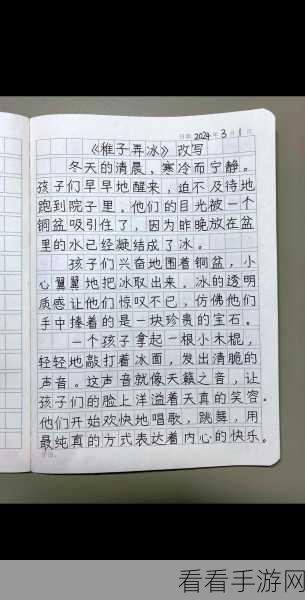 日期 2024年3月1日
《稚子弄冰》改写
冬天的清晨，寒冷而宁静。
孩子们早早地醒来，迫不及待地
跑到院子里。他们的目光被一个
铜盆吸引住了，因为昨晚放在盆
里的水已经凝结成了冰。
孩子们兴奋地围着铜盆，小
心翼翼地把冰取出来。冰的透明
质感让他们惊叹不已，仿佛他们
手中捧着的是一块珍贵的宝石。
一个孩子拿起一根小木棍，
轻轻地敲打着冰面，发出清脆的
声音。这声音就像天籁之音，让
孩子们的脸上洋溢着天真的笑容。
他们开始欢快地唱歌，跳舞，用
最纯真的方式表达着内心的快乐。
看看手游网